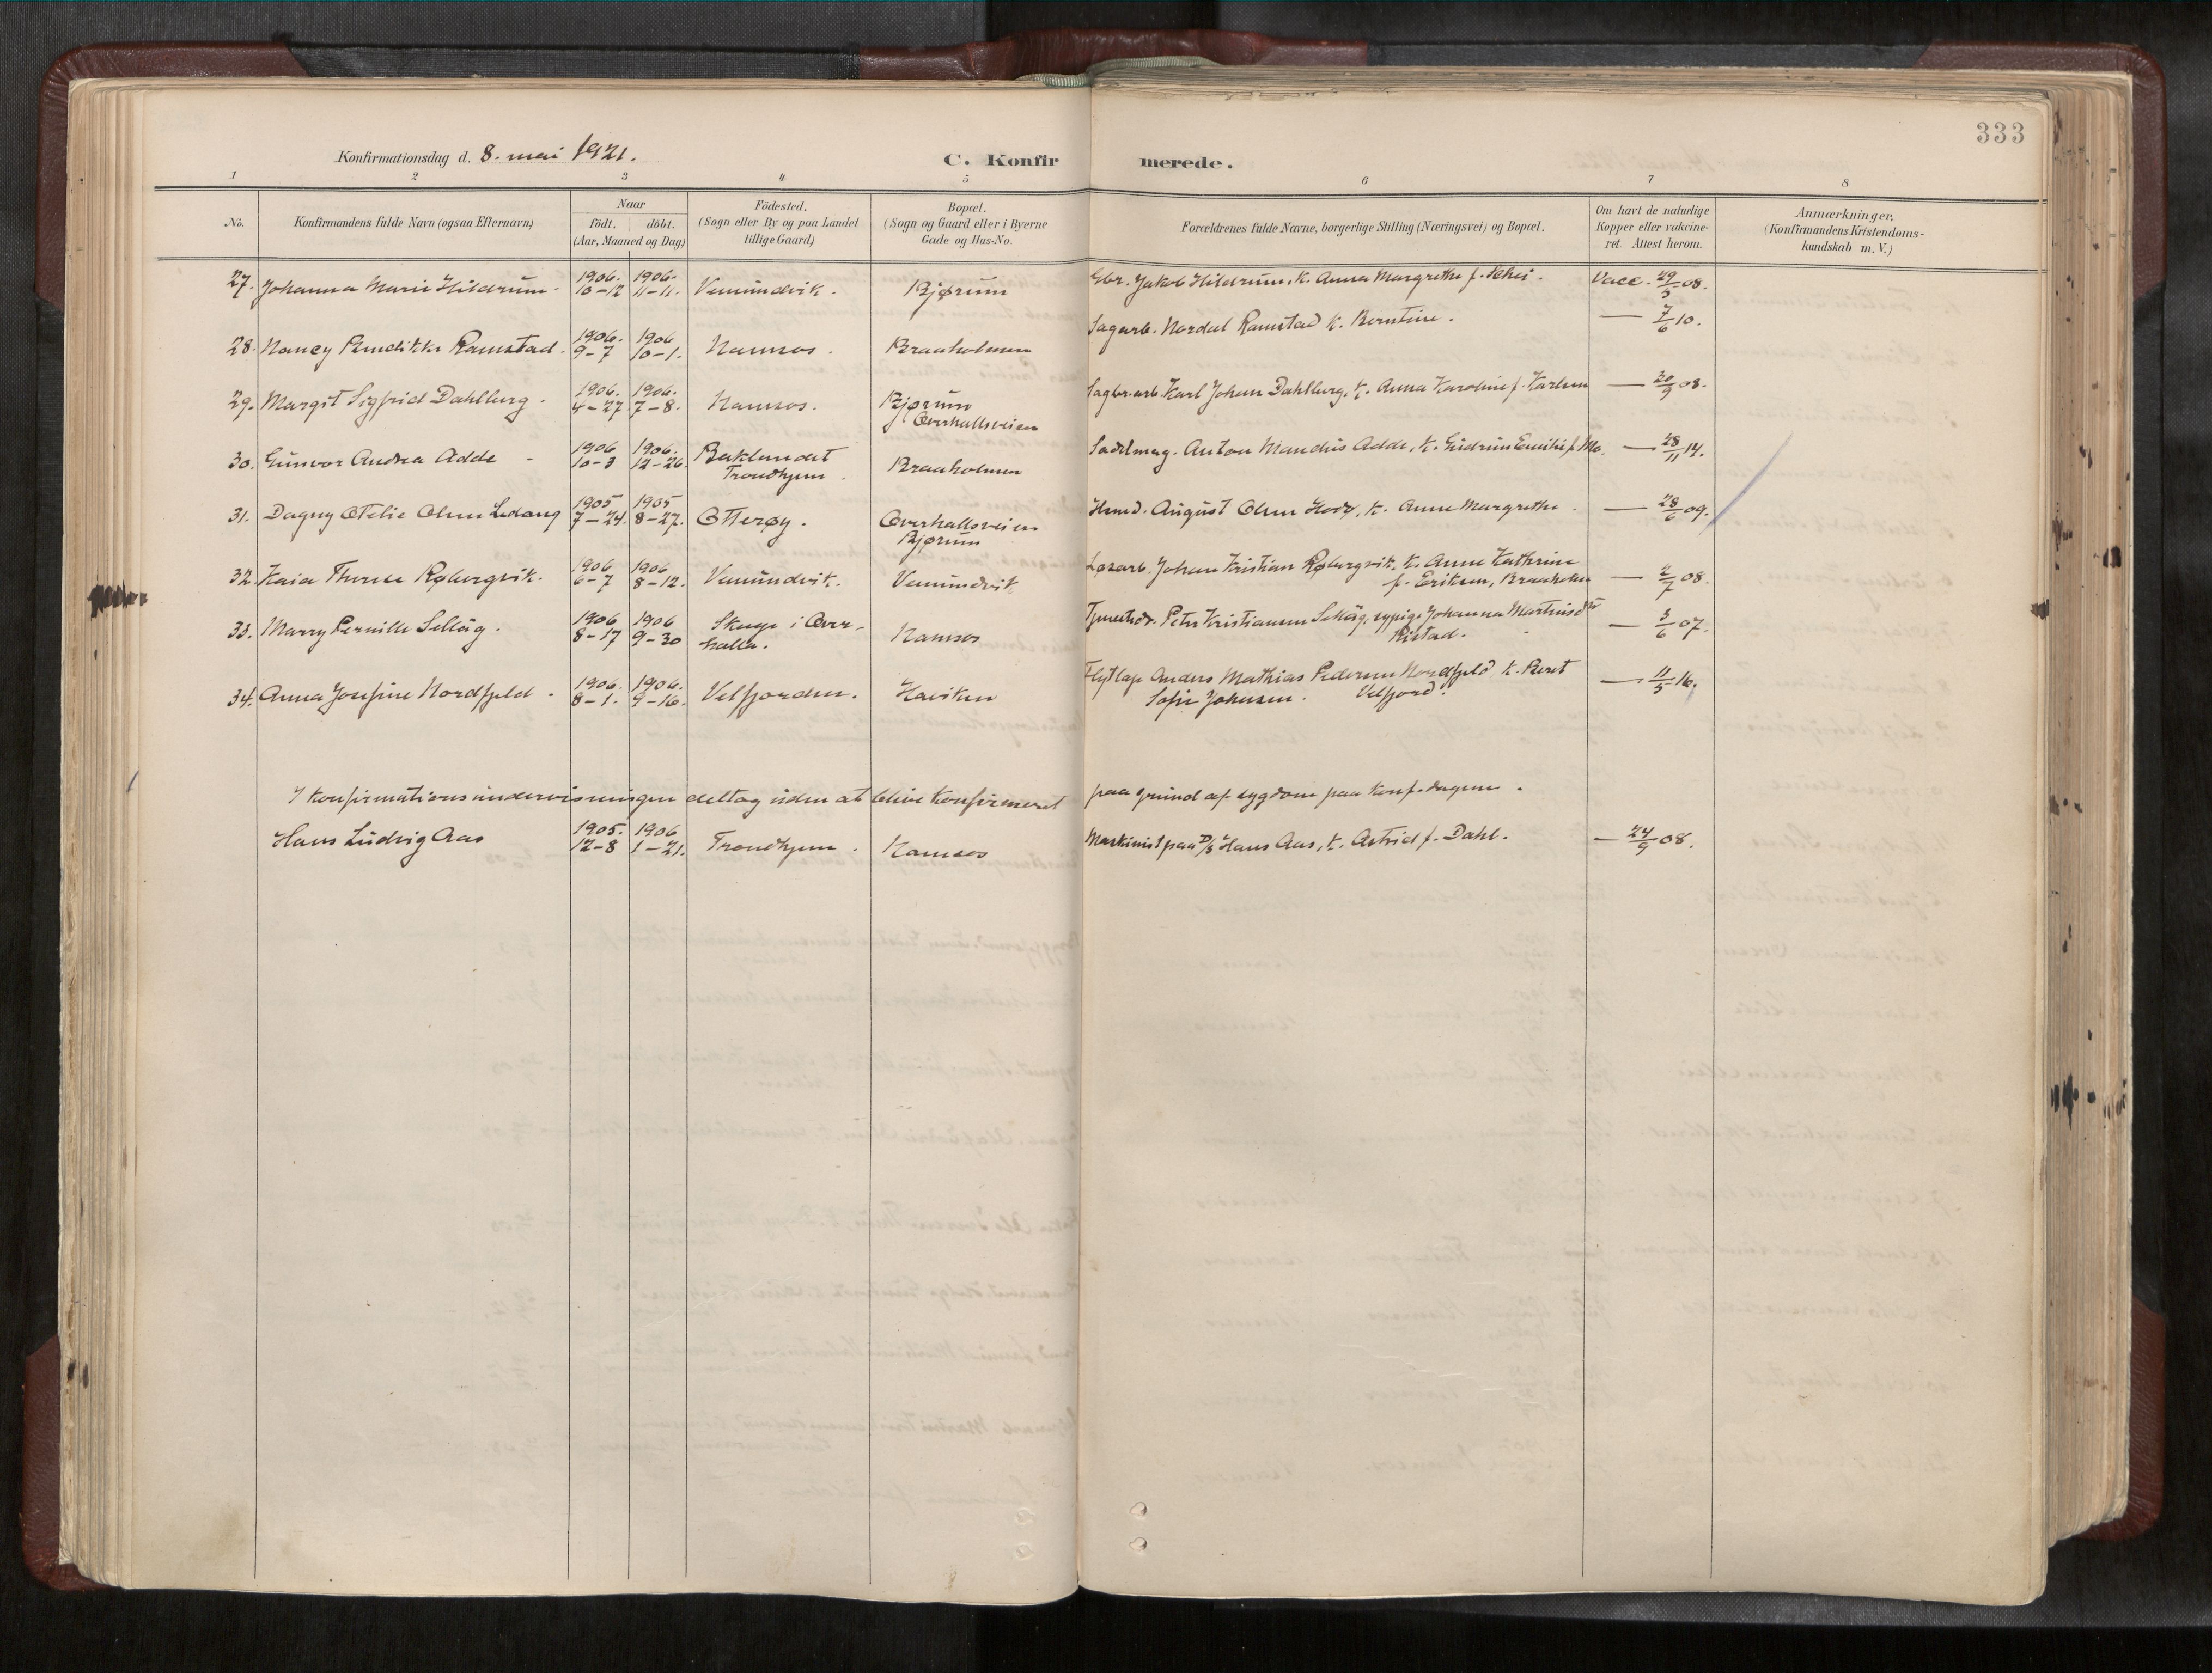 333
Konfirmationsdag d. 8. mai 1921.
C. Konfirmerede.
1 2 3 4 5 6 7 8
No.
Konfirmandens fulde Navn (ogsaa Efternavn)
Naar
födt. döbt.
(Aar, Maaned og Dag)
Födested.
(Sogn eller By og paa Landet
tillige Gaard)
Bopæl.
(Sogn og Gaard eller i Byerne
Gade og Hus-No.
Forældrenes fulde Navne, borgerlige Stilling (Næringsvei) og Bopæl.
Om havt de naturlige
Kopper eller vakcine-
ret. Attest herom.
Anmærkninger.
(Konfirmandens Kristendoms-
kundskab m. V.)
27. Johanna Marie Hildrum. 1906. 10-12 1906. 11-11. Vemundvik. Bjørum Gbr. Jakob Hildrum, k. Anna Margrethe f. Schei. Vacc. 29/5 08.
28. Nancy Benedikte Ramstad. 1906. 9-7 1906 10-1. Namsos. Braaholmen Sagarb. Nordal Ramstad k. Berntine. — 7/6 10.
29. Margit Sigfrid Dahlberg. 1906. 4-27 1906. 7-8. Namsos. Bjørum
Overhallsveien Sagbr.arb. Karl Johan Dahlberg, k. Anna Karoline f. Karlsen — 20/9 08.
30. Gunvor Andrea Adde - 1906 10-3 1906. 12-26. Baklandet
Trondhjem. Braaholmen Sadelmag. Anton Mandius Adde, k. Gudrun Emilie f. Mo. — 28/11 14.
31. Dagny Otelie Olsen Ledang 1905 7-24. 1905 8-27. Otterøy. Overhallsveien
Bjørum Husmd. August Olsen, k. Anne Margrethe. — 28/6 09.
32. Kaia Therese Røbergsvik. 1906 6-7 1906 8-12. Vemundvik. Vemundvik Løsarb. Johan Kristian Røbergsvik. k. Anne Kathrine
f. Eriksen, Braaholm — 2/7 08.
33. Marry Pernille Selläg. 1906 8-17 1906 9-30 Skage i Over-
halla. Namsos Peter Kristiansen Selläg, sypige Johanna Martinsdtr
Ristad. — 3/6 07.
34. Anna Josefine Nordfjeld. 1906. 8-1. 1906. 9-16. Velfjorden. Haviken Flytlap Anders Mathias Pedersen Nordfjeld k. Beret
Sofie Johansen. Velfjord. — 11/5 16.
I konfirmationsundervisningen deltog uden at blive konfirmeret paa grund af sygdom paa konf.dagen.
Hans Ludvig Aas 1905. 12-8 1906 1-21. Trondhjem. Namsos Maskinist paa D/S Hans Aas, k. Astrid f. Dahl. — 24/9 08.